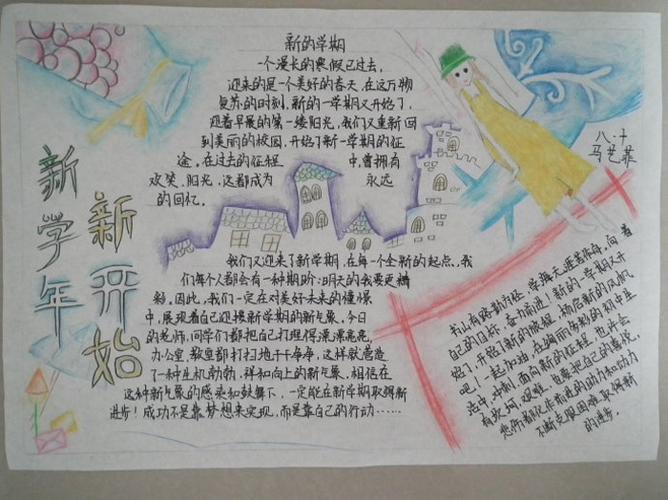 新的学期
一个漫长的寒假已过去，
迎来的是一个美好的春天，在这万物
复苏的时刻，新的一学期又开始了，
迎着早晨的第一缕阳光，我们又重新回
到美丽的校园，开始了新一学期的征
途，在过去的征程中，曾拥有
欢笑、阳光，这都成为永远
的回忆。
我们又迎来了新学期，在每一个全新的起点，我
们每个人都会有一种期盼：明天的我要更精
彩，因此，我们一定在对美好未来的憧憬
中，展现着自己迎接新学期的新气象，今日
的老师，同学们都把自己打理得漂漂亮亮，
办公室，教室都打扫地干干净净，这样就营造
了一种生机勃勃，祥和向上的新气象，相信在
这种新气象的感染和鼓舞下，一定能在新学期取得新
进步！成功不是靠梦想来实现，而是靠自己的行动……
新学年
新开始
八.十
马艺菲
书山有路勤为径，学海无涯苦作舟，向着
自己的目标，奋力前进！新的一学期又开
始了，开始了新的旅程，扬起新的风帆
吧！一起加油，在绚丽而多彩的初中生
活中，冲刺！面向新的征程，也许会
有坎坷，艰难，也要把自己的喜悦，
悲伤都化作前进的助力和动力
不断克服困难取得新
的进步。